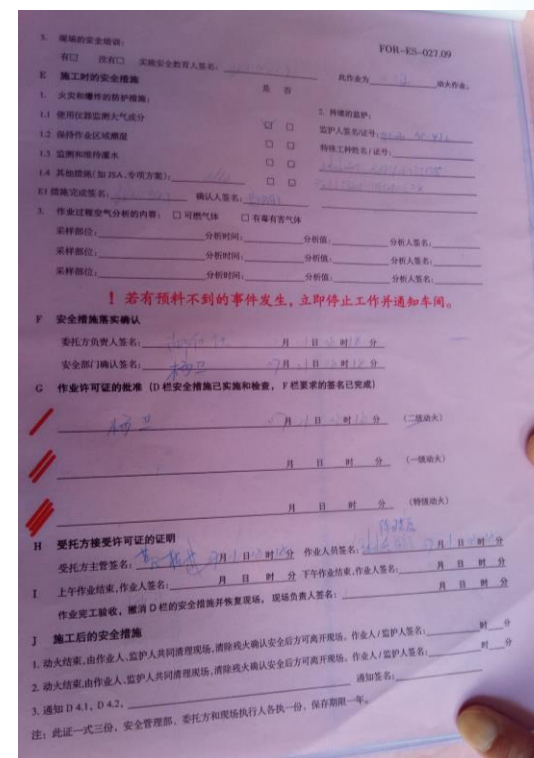 3. 现场的安全培训:
FOR-ES-027.09
有□ 没有□ 实施安全教育人签名: 此作业为 动火作业。
E 施工时的安全措施
是 否
1. 火灾和爆炸的防护措施:
2. 持续的监护:
1.1 使用仪器监测大气成分 ☑ □
监护人签名/证号:
1.2 保持作业区域潮湿 □ □
特殊工种姓名/证号:
1.3 监测和维持灌水 □ □
1.4 其他措施(如JSA,专项方案): □ □
E1措施完成签名: 确认人签名:
3. 作业过程空气分析的内容: □ 可燃气体 □ 有毒有害气体
采样部位: 分析时间: 分析值: 分析人签名:
采样部位: 分析时间: 分析值: 分析人签名:
采样部位: 分析时间: 分析值: 分析人签名:
! 若有预料不到的事件发生,立即停止工作并通知车间。
F 安全措施落实确认
委托方负责人签名: 月 日 时 分
安全部门确认签名: 杨卫 07月 日 时 分
G 作业许可证的批准 (D栏安全措施已实施和检查, F栏要求的签名已完成)
杨卫 月 日 时 分 (二级动火)
月 日 时 分 (一级动火)
月 日 时 分 (特级动火)
H 受托方接受许可证的证明
受托方主管签名: 月 日 时 分 作业人员签名: 月 日 时 分
I 上午作业结束,作业人签名: 月 日 时 分 下午作业结束,作业人签名: 月 日 时 分
作业完工验收,撤消D栏的安全措施并恢复现场, 现场负责人签名: 月 日 时 分
J 施工后的安全措施
1. 动火结束,由作业人、监护人共同清理现场,清除残火确认安全后方可离开现场。作业人/监护人签名: 时 分
2. 动火结束,由作业人、监护人共同清理现场,清除残火确认安全后方可离开现场。作业人/监护人签名: 时 分
3. 通知D4.1, D4.2, 通知签名:
注: 此证一式三份, 安全管理部、委托方和现场执行人各执一份, 保存期限一年。